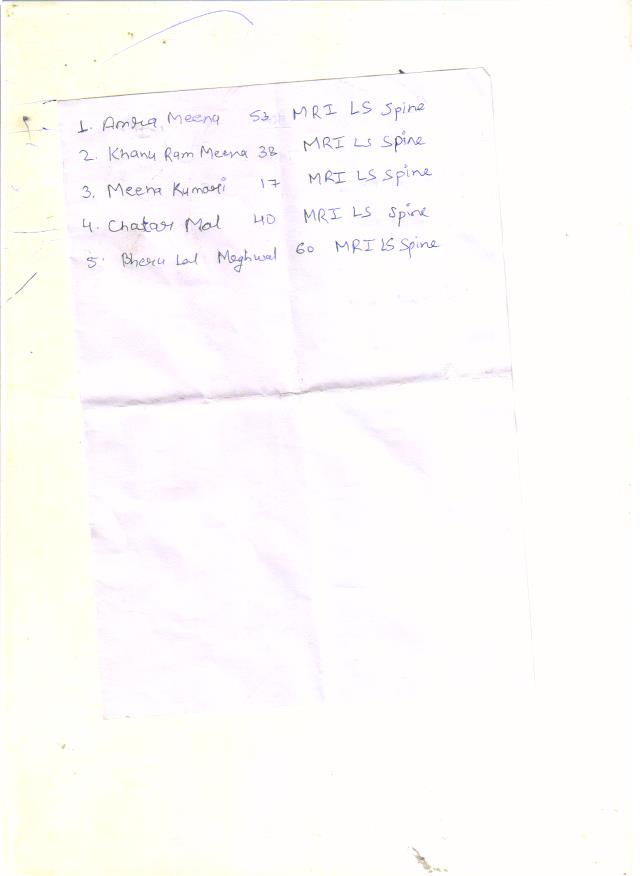 1. Amra Meena 53 MRI LS Spine
2. Khanu Ram Meena 38 MRI LS Spine
3. Meena Kumari 17 MRI LS Spine
4. Chatar Mal 40 MRI LS Spine
5. Bheru Lal Meghwal 60 MRI LS Spine